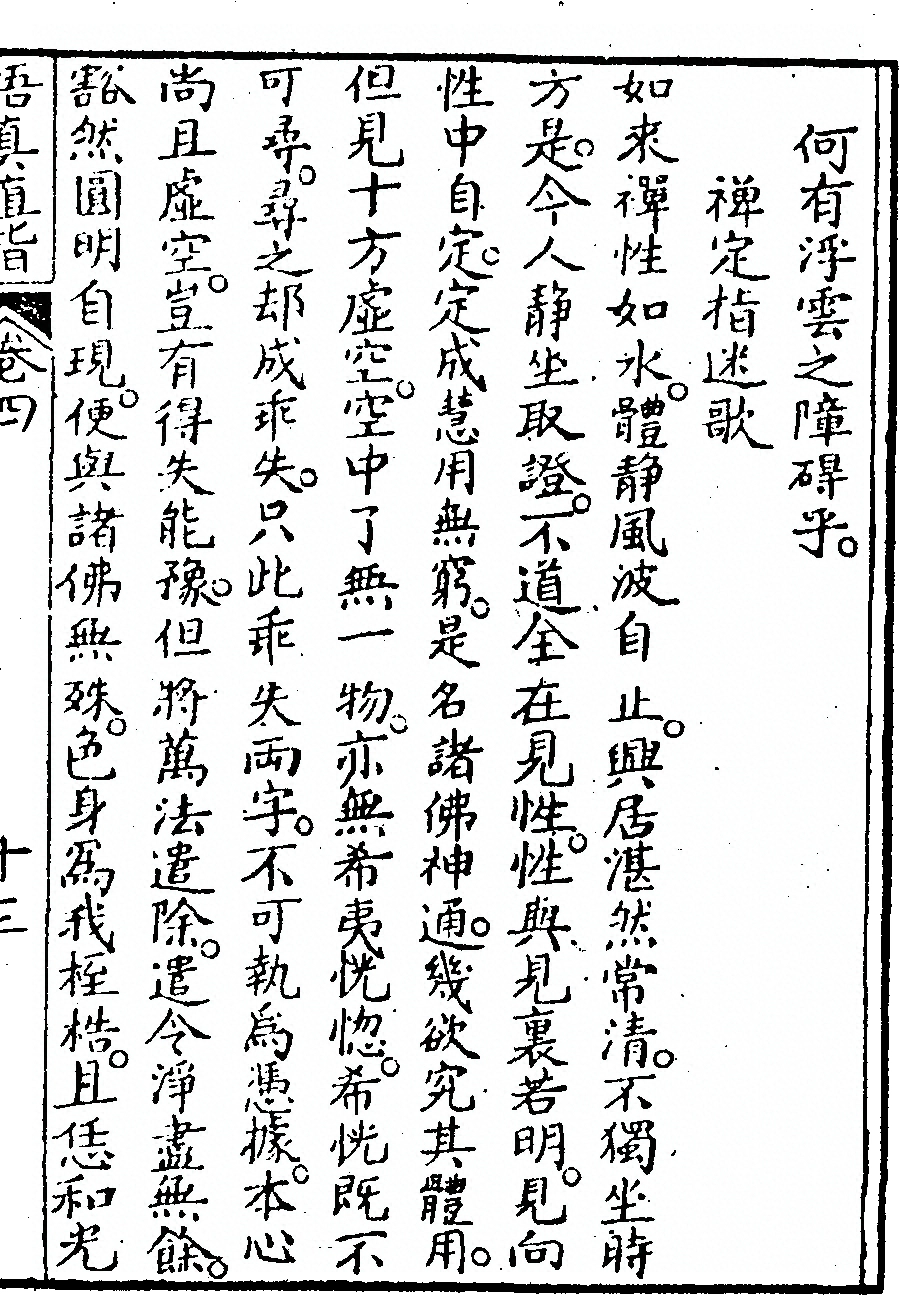 何有浮雲之障碍乎。
禅定指迷歌
如來禪性如水。體静風波自止。興居湛然常清。不獨坐時
方是。今人静坐取證。不道全在見性。性與見裏若明。見向
性中自定。定成慧用無窮。是名諸佛神通。幾欲究其體用。
但見十方虛空。空中了無一物。亦無希夷恍惚。希恍既不
可尋。尋之却成乖失。只此乖失兩字。不可執為憑據。本心
尚且虛空。豈有得失能豫。但將萬法遣除。遣令淨盡無餘。
豁然圓明自現。便與諸佛無殊。色身為我桎梏。且恁和光
悟真直指
卷四
十三